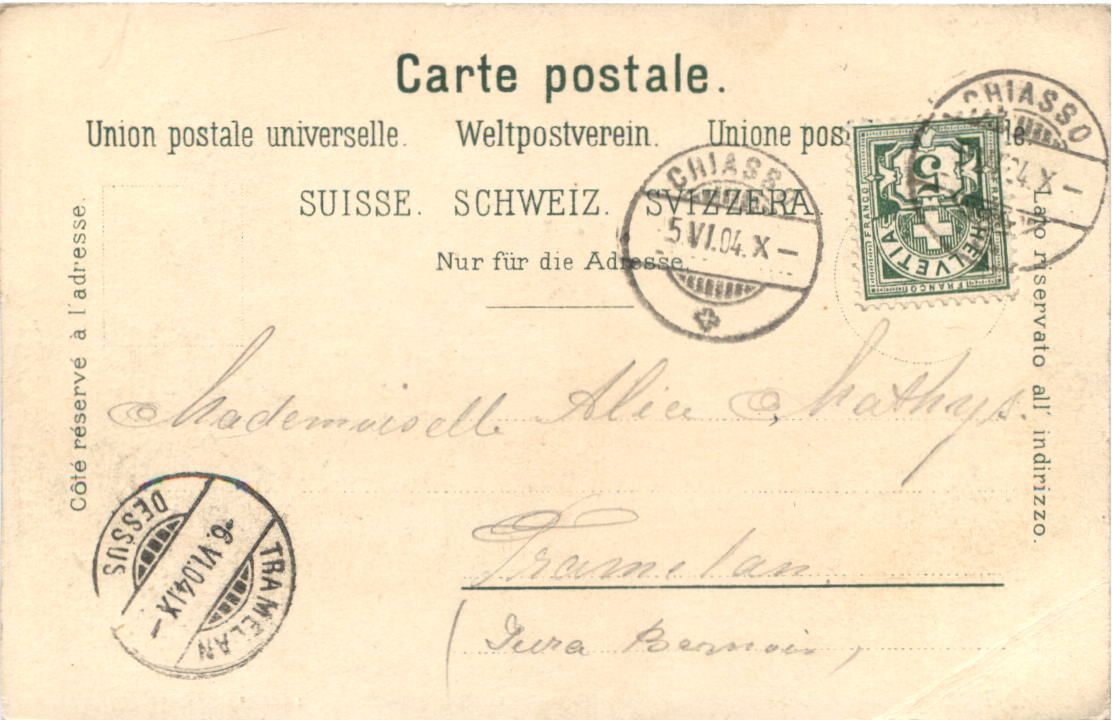 Carte postale.
Union postale universelle. Weltpostverein. Unione pos le.
SUISSE. SCHWEIZ. SVIZZERA.
Nur für die Adresse.
Côté réservé à l'adresse.
Lato riservato all' indirizzo.
CHIASSO
5.VI.04.X–
CHIASSO
04.X–
5
HELVETIA
FRANCO
FRANCO
FRANCO
Mademoiselle Alice Mathys.
Tramelan
(Jura Bernois,
TRAMELAN
-6.VI.04.IX–
DESSUS